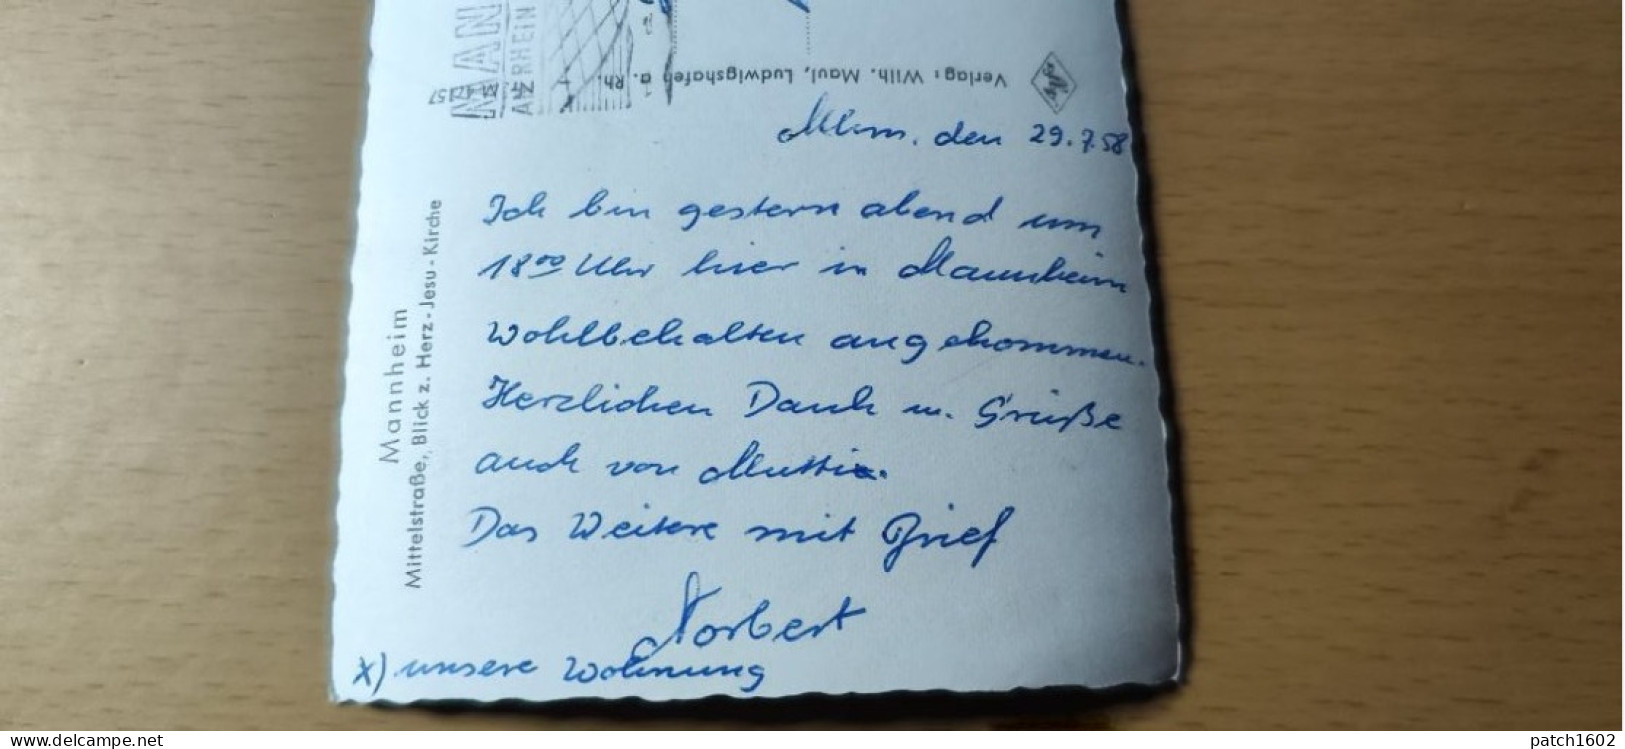 MAN
A/RHEIN
57
Verlag: Wilh. Maul, Ludwigshafen a. Rh.
Mhm. den 29.7.58
Mannheim
Mittelstraße, Blick z. Herz-Jesu-Kirche
Ich bin gestern abend um
18⁰⁰ Uhr hier in Mannheim
Wohlbehalten angekommen.
Herzlichen Dank u. Grüße
auch von Mutti.
Das Weitere mit Brief
Norbert
x) unsere Wohnung
www.delcampe.net
patch1602